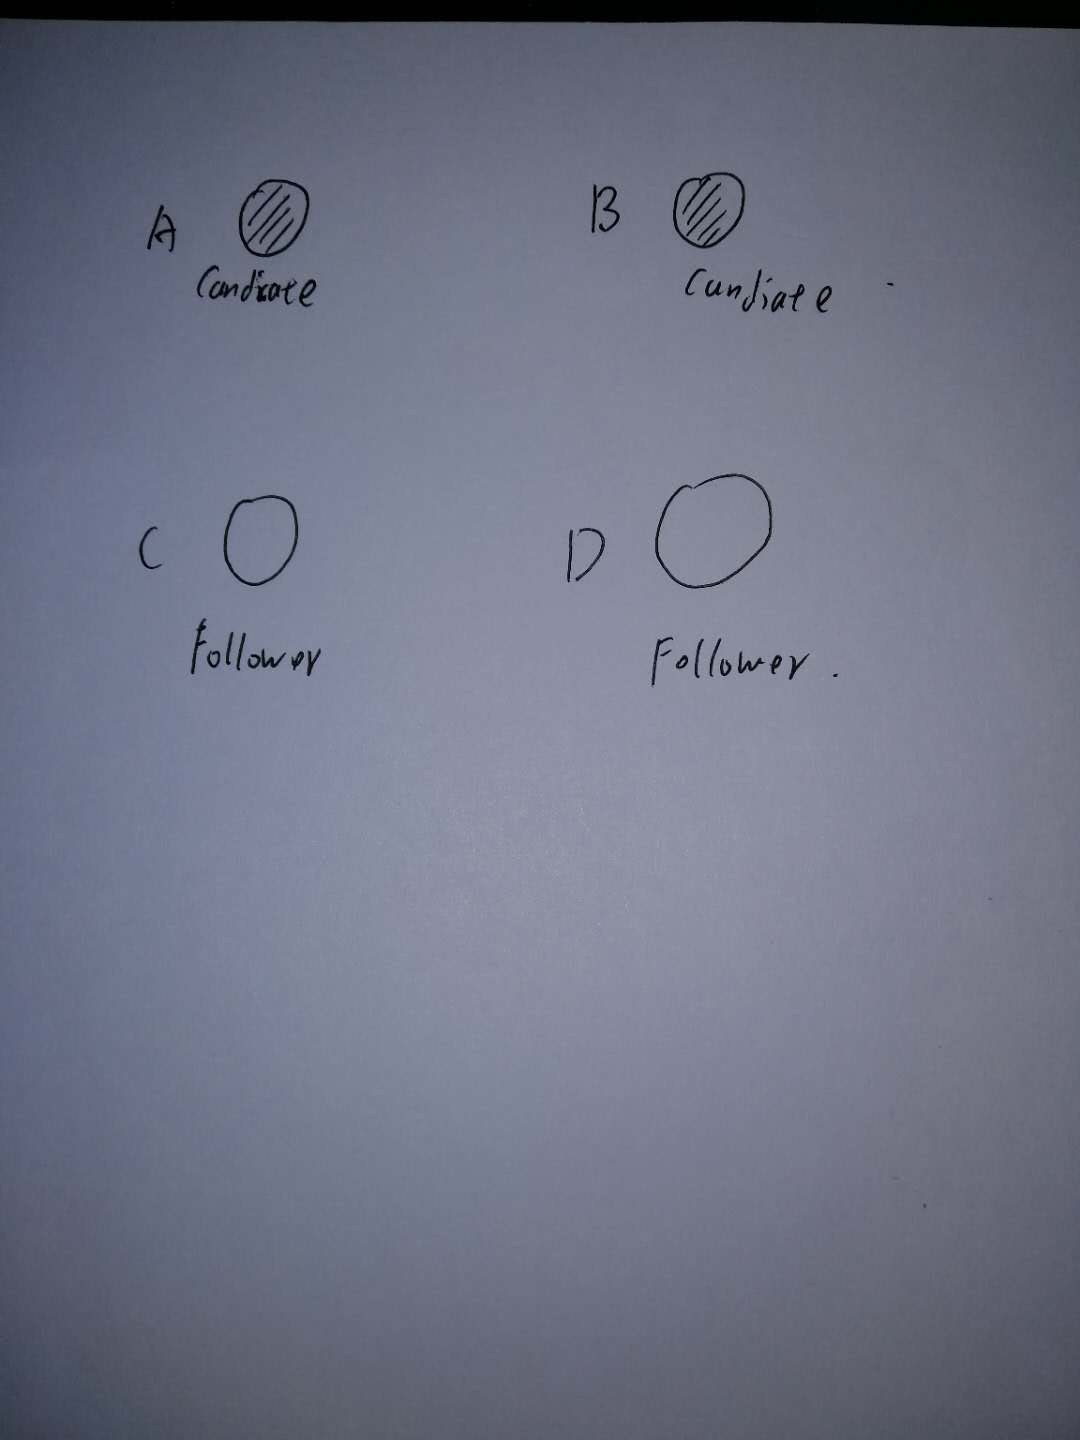 A B
Candiate Candiate
C D
Follower Follower.